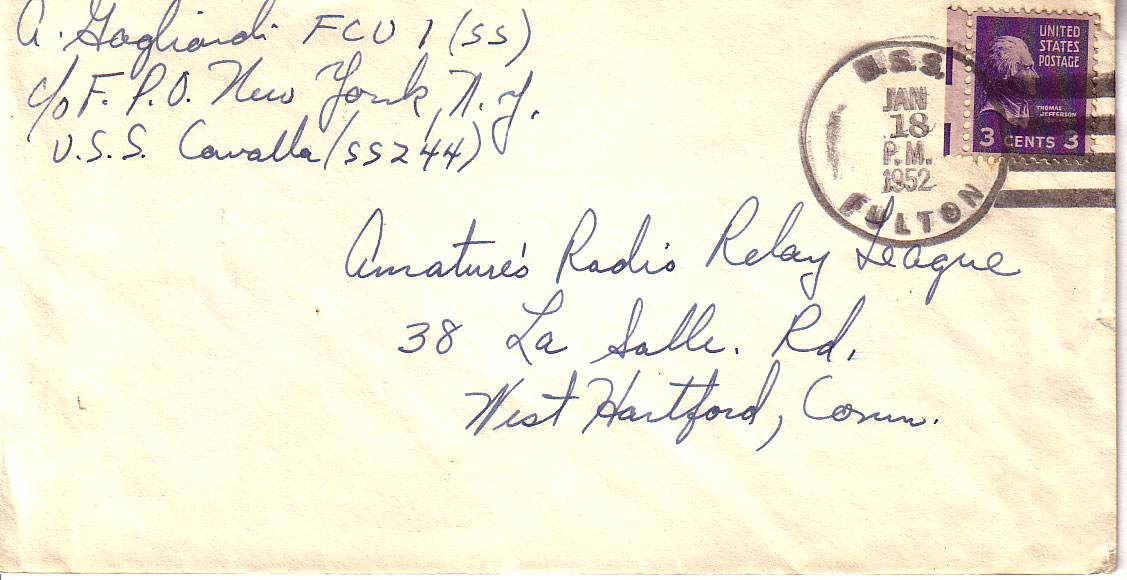 A. Gagliardi FCU 1 (SS)
c/o F. P. O. New York, N. Y.
U. S. S. Cavalla (SS244)
U.S.S.
JAN
18
P.M.
1952
FULTON
UNITED
STATES
POSTAGE
THOMAS
JEFFERSON
3 CENTS 3
Amature's Radio Relay League
38 La Salle. Rd.
West Hartford, Conn.